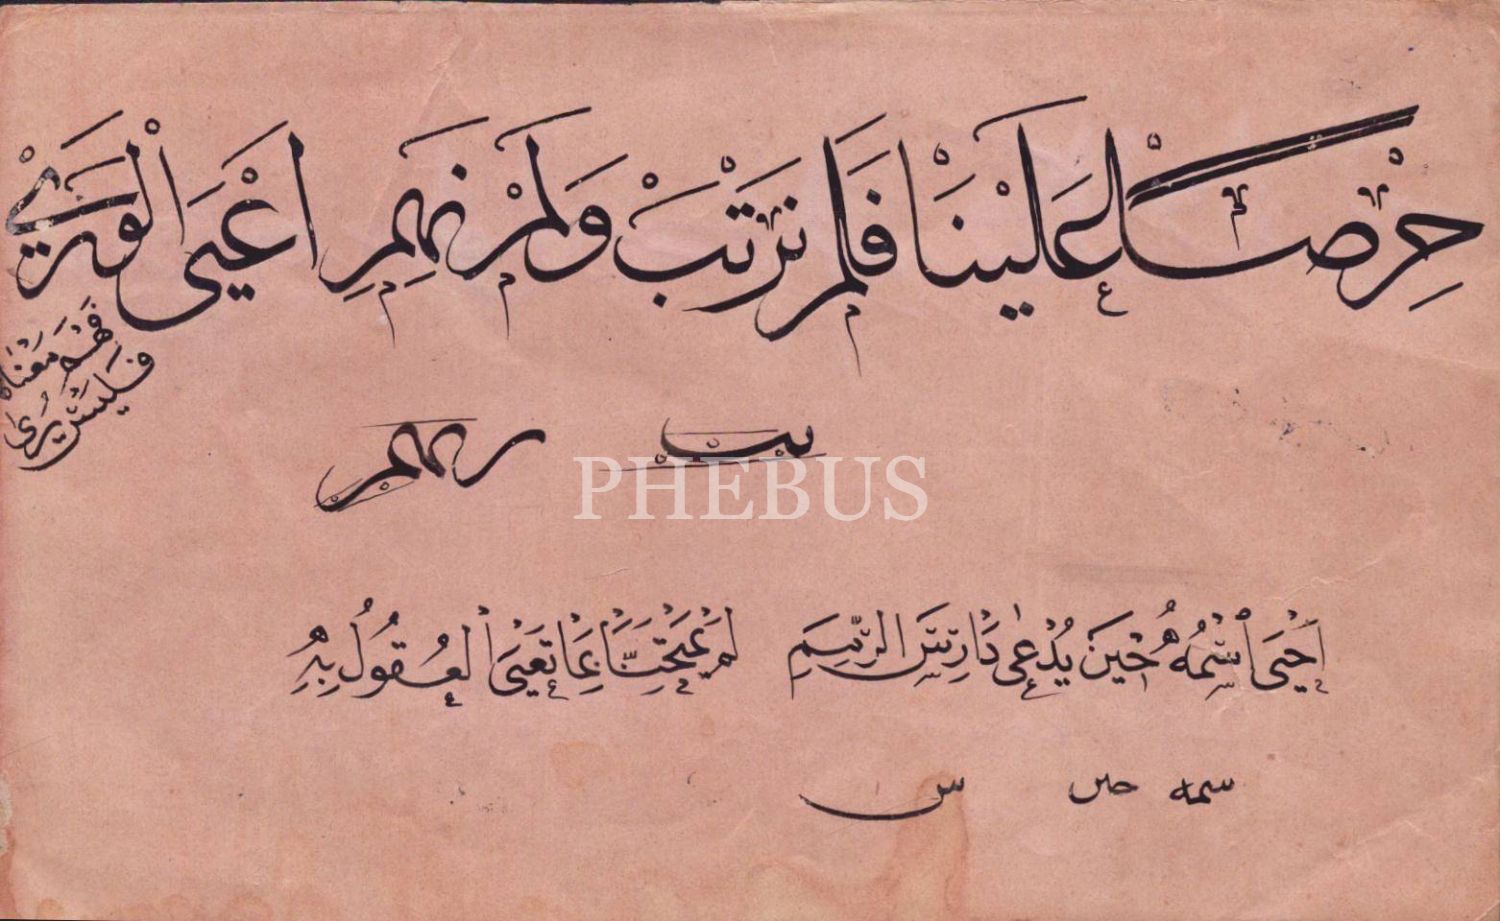 حِرْصًا عَلَيْنَا فَلَمْ نَرْتَبْ وَلَمْ نَهِمِ اَعْيَى الْوَرَى
فَهْمُ مَعْنَاهُ
فَلَيْسَ يُرَى
ب يب
ر مهم
PHEBUS
اَحْيَى اسْمُهُ حِينَ يُدْعَى دَارِسَ الرِّمَمِ لَمْ يَمْتَحِنَّا بِمَا تَعْيَى الْعُقُولُ بِهِ
سمه حىں س